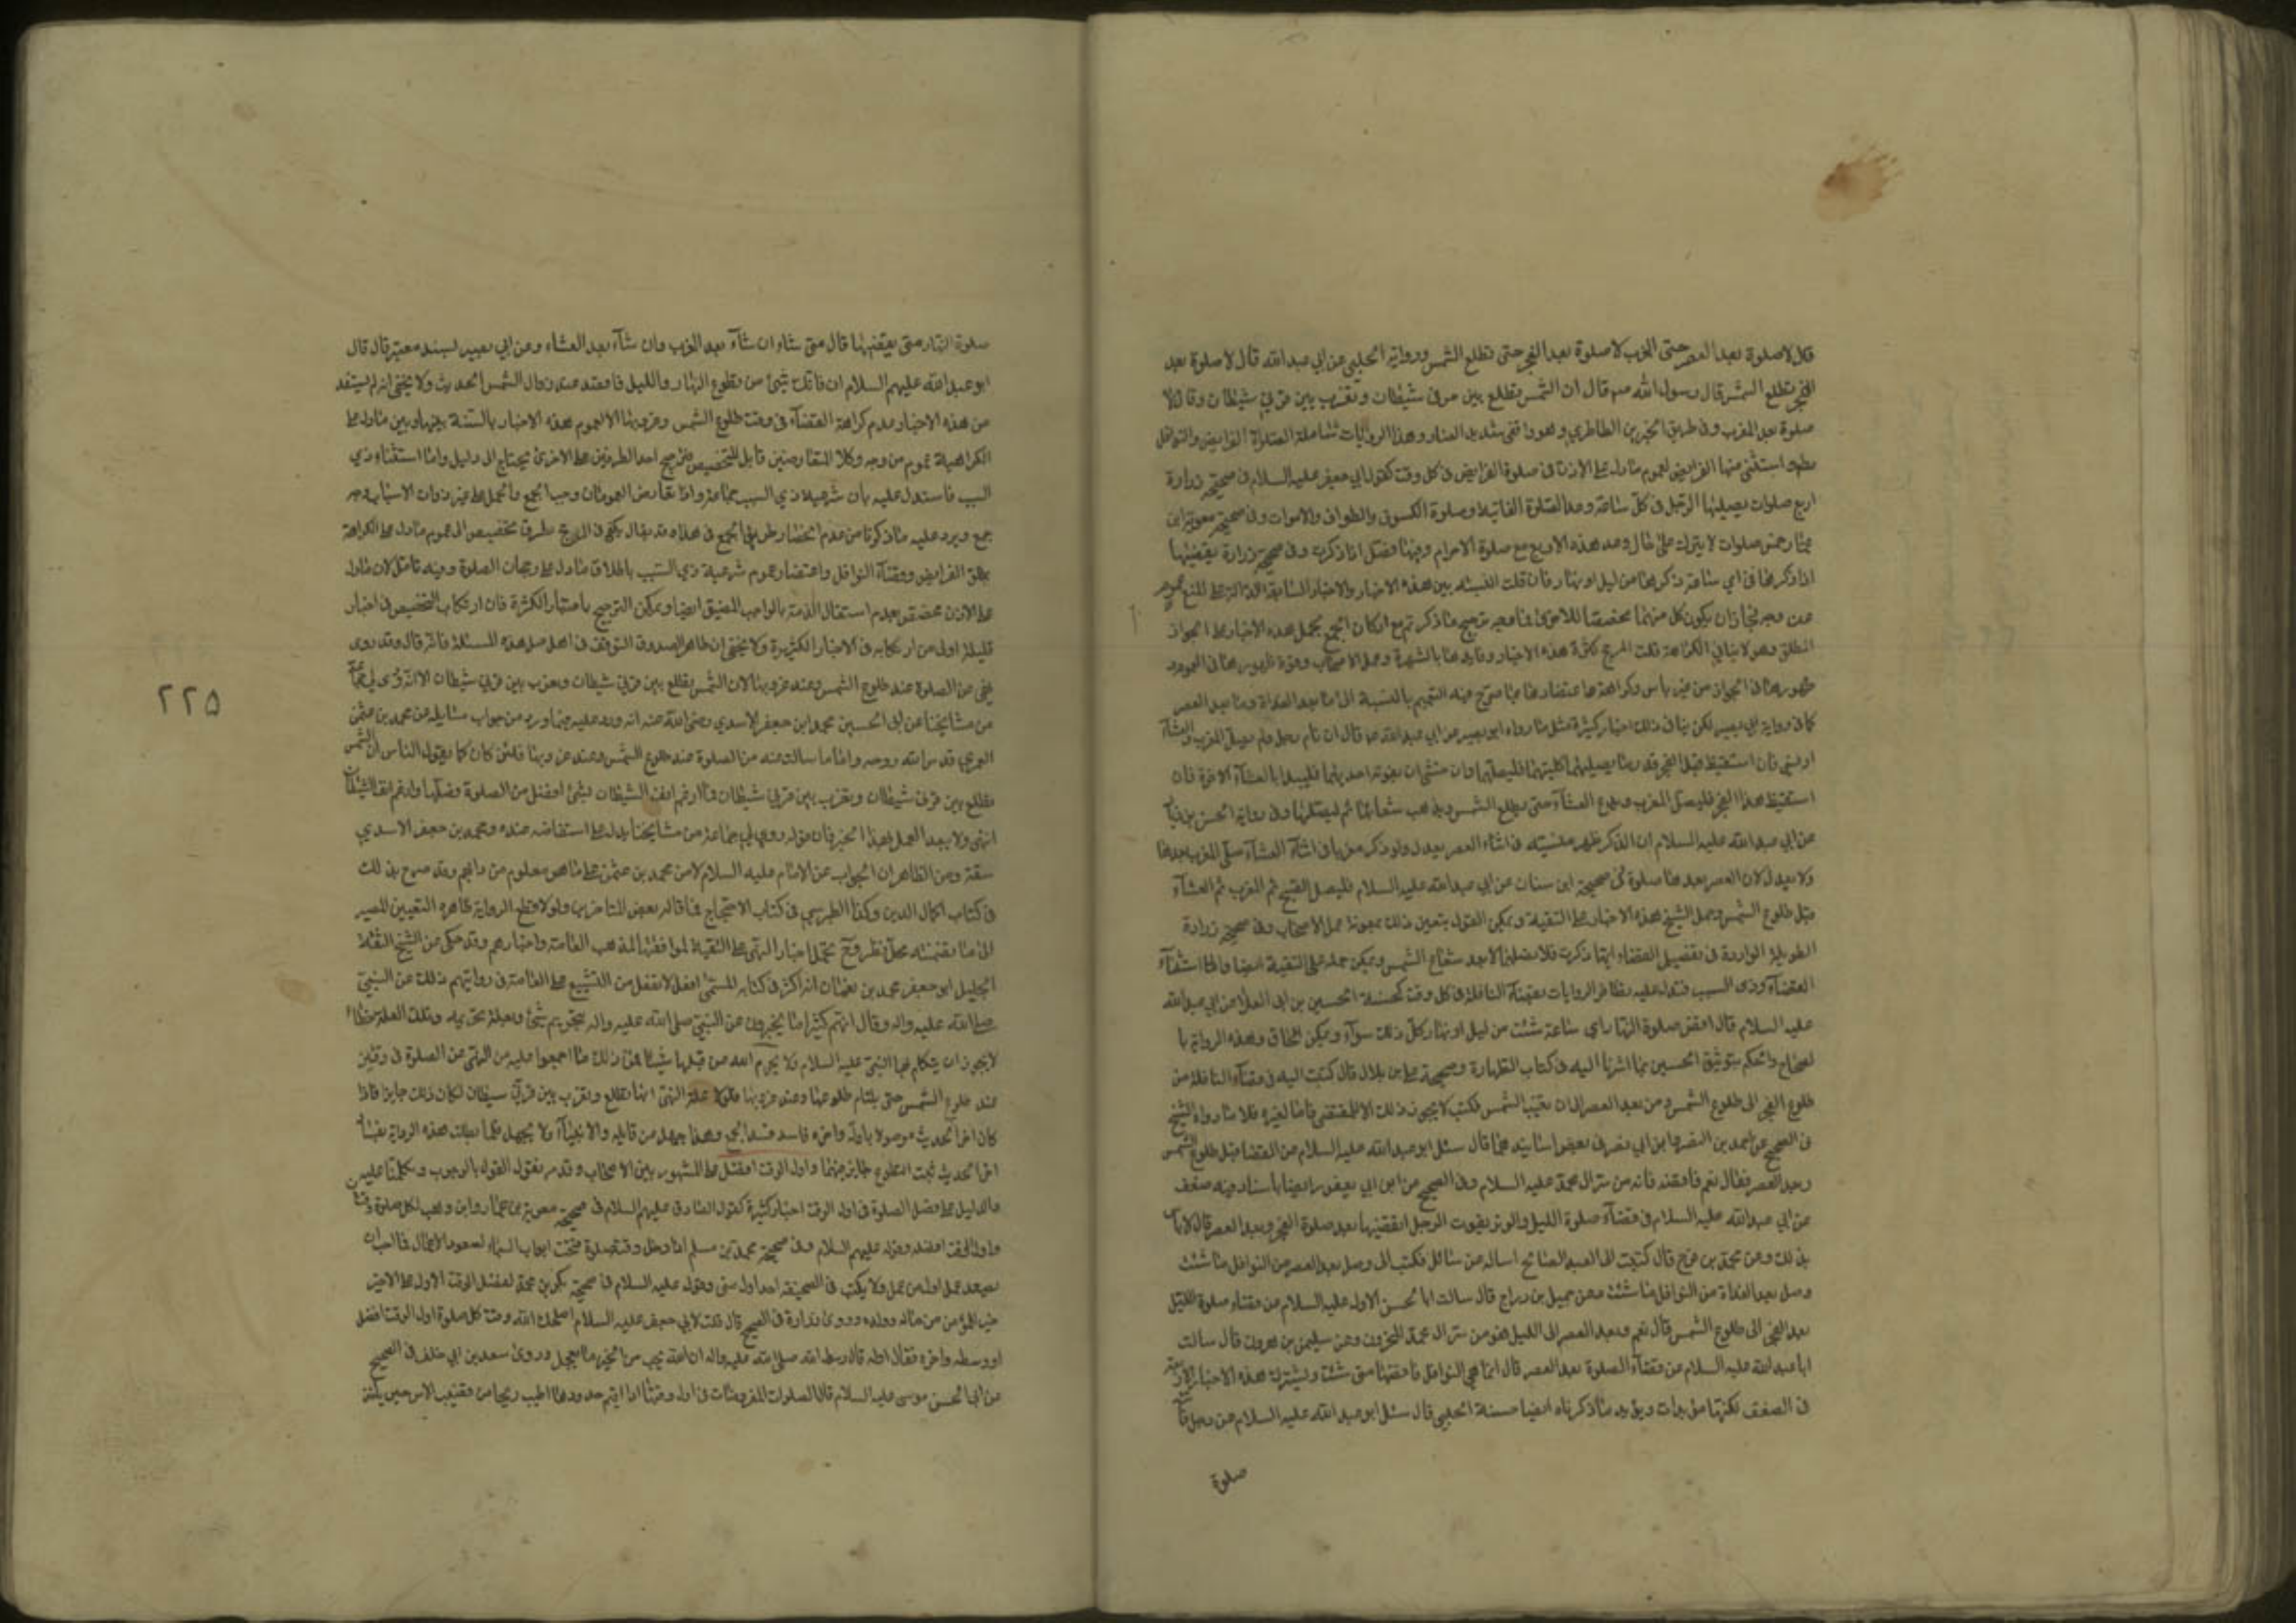 قال لا صلوة بعد العصر حتى المغرب لا صلوة بعد الفجر حتى تطلع الشمس ورواية الحلبي عن ابي عبد الله قال لا صلوة بعد
الفجر تطلع الشمس قال رسول الله قال ان الشمس تطلع بين قرني شيطان وتغرب بين قرني شيطان وقال لا
صلوة بعد المغرب وفي طريق الخبرين الطاطري وهو واقفي شديد العناد وهذا الروايات شاملة الفرايض والنوافل
استثنى منها الفرايض لعموم مادل على الاذن في صلوة الفرايض في كل وقت كقول ابي جعفر عليه السلام في صحيحة زرارة
اربع صلوات يصليها الرجل في كل ساعة وصلوة الكسوف والطواف والاموات وفي صحيحة معوية بن
عمار خمس صلوات لا يترك على حال وعد هذه الاربع مع صلوة الاحرام اذا ذكرت وفي صحيح زرارة يقضيها
اذا ذكرها في اي ساعة ذكرها من ليل او نهار فان قلت النسبة بين هذه الاخبار والاخبار السابقة الدالة على المنع عموم
من وجه فجاز ان يكون كل منهما مخصصا للاخرى مع امكان الجمع بحمل هذه الاخبار على الجواز
المطلق وهو لا ينافي الكراهة قلت المرجح كثرة هذه الاخبار بالشهرة وعمل الاصحاب وقوة ظهورها في العموم
ظهورها في الجواز من غير باس وكراهة واعتضادها بما صرح فيه التعميم بالنسبة الى ما بعد الغداة وما بعد العصر
كما في رواية ابي بصير لكن ينافي ذلك اخبار كثيرة مثل ما رواه ابو بصير عن ابي عبد الله قال ان نام رجل ولم يصل المغرب والعشاء
او نسي فان استيقظ قبل الفجر قدر ما يصليهما كلتيهما فليصلهما وان خشي ان يفوته احديهما فليبدا بالعشاء الاخرة فان
استيقظ بعد الفجر فليصل المغرب ويدع العشاء حتى يطلع الشمس ويذهب شعاعها ثم ليصلها وفي رواية الحسن بن زياد
عن ابي عبد الله عليه السلام ان الذكر ظهر منسيته في اثناء العصر يعدل ولو ذكر مغربا في اثناء العشاء صلى المغرب بعدها
ولا يعدل لان العصر بعدها صلوة في صحيحة ابن سنان عن ابي عبد الله عليه السلام فليصل الصبح ثم المغرب ثم العشاء
قبل طلوع الشمس وحمل الشيخ هذه الاخبار على التقية ويمكن القول بتعين ذلك بمعونة عمل الاصحاب وفي صحيحة زرارة
الطويلة الواردة في تفصيل القضاء ايتهما ذكرت فلا تصلهما الا بعد شعاع الشمس ويمكن حمله على التقية ايضا واما استثناء
القضاء وذي السبب فتدل عليه تظافر الروايات بقضاء النافلة في كل وقت كحسنة الحسين بن ابي العلا عن ابي عبد الله
عليه السلام قال اقض صلوة النهار اي ساعة شئت من ليل او نهار كل ذلك سواء ويمكن الحاق هذه الرواية با
لصحاح والحكم بتوثيق الحسين بما اشرنا اليه في كتاب الطهارة وصحيحة علي بن بلال قال كتبت اليه في قضاء النافلة من
طلوع الفجر الى طلوع الشمس ومن بعد العصر الى ان تغيب الشمس فكتب لا يجوز ذلك الا للمقتضي فاما لغيره فلا ما رواه الشيخ
في الصحيح عن احمد بن ابي نصر في بعض اسانيده قال سئل ابو عبد الله عليه السلام عن القضاء قبل طلوع الشمس
وبعد العصر فقال نعم فاقضه فانه من سر ال محمد عليه السلام وفي الصحيح عن ابن ابي يعفور ايضا باسناد فيه ضعف
عن ابي عبد الله عليه السلام في قضاء صلوة الليل والوتر يفوت الرجل ايقضيها بعد صلوة الفجر وبعد العصر قال لا باس
بذلك وعن محمد بن فرج قال كتبت الى العبد الصالح اساله عن مسائل فكتب الي وصل بعد العصر من النوافل ما شئت
وصل بعد الغداة من النوافل ما شئت وعن جميل بن دراج قال سالت ابا الحسن الاول عليه السلام عن قضاء صلوة الليل
بعد الفجر الى طلوع الشمس قال نعم وبعد العصر الى الليل فهو من سر ال محمد المخزون وعن سليمن بن هرون قال سالت
ابا عبد الله عليه السلام عن قضاء الصلوة بعد العصر قال انما هي النوافل فاقضها متى شئت وتشترك هذه الاخبار الاربعة
في الضعف لكنها مؤيدات ويؤيد ما ذكرناه ايضا حسنة الحلبي قال سئل ابو عبد الله عليه السلام عن رجل فات
صلوة
صلوة النهار متى يقضيها قال متى شاء ان شاء بعد المغرب وان شاء بعد العشاء وعن ابي بصير بسند معتبر قال قال
ابو عبد الله عليهم السلام ان فاتك شيئ من تطوع النهار والليل فاقضه عند زوال الشمس الحديث ولا يخفى انه لم يستفد
من هذه الاخبار عدم كراهة القضاء في وقت طلوع الشمس وغروبها الا لعموم هذه الاخبار بالنسبة بينها وبين مادل على
الكراهة عموم من وجه وكلا المتعارضين قابل للتخصيص فترجيح احد الطرفين على الاخرى يحتاج الى دليل واما استثناء ذي
السبب فاستدل عليه بان شرعية ذي السبب عامة واذا تعارض العمومان وجب الجمع والحمل على غير ذوات الاسباب وجه
جمع ويرد عليه ما ذكرنا من عدم انحصار طريق الجمع في هذا وقد يقال يكفي في الترجيح تطرق تخصيص الى عموم مادل على الكراهة
بقضاء الفرايض وقضاء النوافل واعتضاد عموم شرعية ذي السبب باطلاق مادل على رجحان الصلوة وفيه تامل لان مادل
على الاذن معتضد بعدم اشتغال الذمة بالواجب المضيق ايضا ويمكن الترجيح باعتبار الكثرة فان ارتكاب التخصيص في اخبار
قليلة اولى من ارتكابه في الاخبار الكثيرة ولا يخفى ان ظاهر الصدوق التوقف في اصل هذه المسئلة فانه قال وقد روى
نهى عن الصلوة عند طلوع الشمس وعند غروبها لان الشمس تطلع بين قرني شيطان وتغرب بين قرني شيطان الا انه روى لي جماعة
من مشايخنا عن ابي الحسين محمد ابن جعفر الاسدي رضي الله عنه انه ورد عليه فيما ورد من جواب مسايله من محمد بن عثمن
العمري قدس الله روحه واما ما سالت عنه من الصلوة عند طلوع الشمس وعند غروبها فلئن كان كما يقول الناس ان الشمس
تطلع بين قرني شيطان وتغرب بين قرني شيطان فما ارغم انف الشيطان بشئ افضل من الصلوة فصلها وارغم انف الشيطان
انتهى ولا يبعد العمل بهذا الخبر فان قوله روى لي جماعة من مشايخنا يدل على استفاضته عنده ومحمد بن جعفر الاسدي
ثقة ومن الظاهر ان الجواب عن الامام عليه السلام لا من محمد بن عثمن على ما هو معلوم من دابهم وقد صرح بذلك
في كتاب اكمال الدين وكذا الطبرسي في كتاب الاحتجاج فما قاله بعض المتاخرين ولولا قطع الرواية ظاهره التعيين المصير
الى ما تضمنته محل نظر وح يحمل اخبار النهي على التقية لموافقتها لمذهب العامة واخبارهم وقد حكى عن الشيخ الثقة
الجليل ابو جعفر محمد بن نعمان انه اكثر في كتابه المسمى افعل لا تفعل من التشنيع على العامة في روايتهم ذلك عن النبي
صلى الله عليه واله وقال انهم كثيرا ما يخبرون عن النبي صلى الله عليه واله بتحريم شئ وبعلة تحريمه وتلك العلة خطاء
لا يجوز ان يتكلم بها النبي عليه السلام ولا يحرم الله من قبلها شيئا فمن ذلك ما اجمعوا عليه من النهي عن الصلوة في وقتين
عند طلوع الشمس حتى يلتام طلوعها وعند غروبها فلولا علة النهي انها تطلع وتغرب بين قرني شيطان لكان ذلك جايزا فاذا
كان اخر الحديث موصولا باوله واخره فاسد فسد الجميع وهذا جهل من قايله والانبياء لا تجهل فلما بطلت هذه الرواية بفساد
اخر الحديث ثبت ان التطوع جايز فيهما واول الوقت افضل على المشهور بين الاصحاب وقد مر نقول القول بالوجوب وتكلمنا عليه
والدليل على فضل الصلوة في اول الوقت اخبار كثيرة كقول الصادق عليهم السلام في صحيحة معوية بن عمار وابن وهب لكل صلوة وقتان
واول الوقت افضله وقوله عليهم السلام وفي صحيحة محمد بن مسلم اذا دخل وقت صلوة فتحت ابواب السماء لصعود الاعمال فما احب ان
يصعد عمل اول من عملي ولا يكتب في الصحيفة احد اول مني وقوله عليه السلام في صحيحة بكر بن محمد لفضل الوقت الاول على الاخير
خير للمؤمن من ماله وولده وروى زرارة في الصحيح قال قلت لابي جعفر عليه السلام اصلحك الله وقت كل صلوة اول الوقت افضل
او وسطه واخره فقال اوله قال رسول الله صلى الله عليه واله ان الله يحب من الخير ما يعجل وروى سعد بن ابي خلف في الصحيح
عن ابي الحسن موسى عليه السلام قال الصلوات المفروضات في اول وقتها اذا اقيم حدودها اطيب ريحا من قضيب الاس حين يؤخذ
٢٢٥